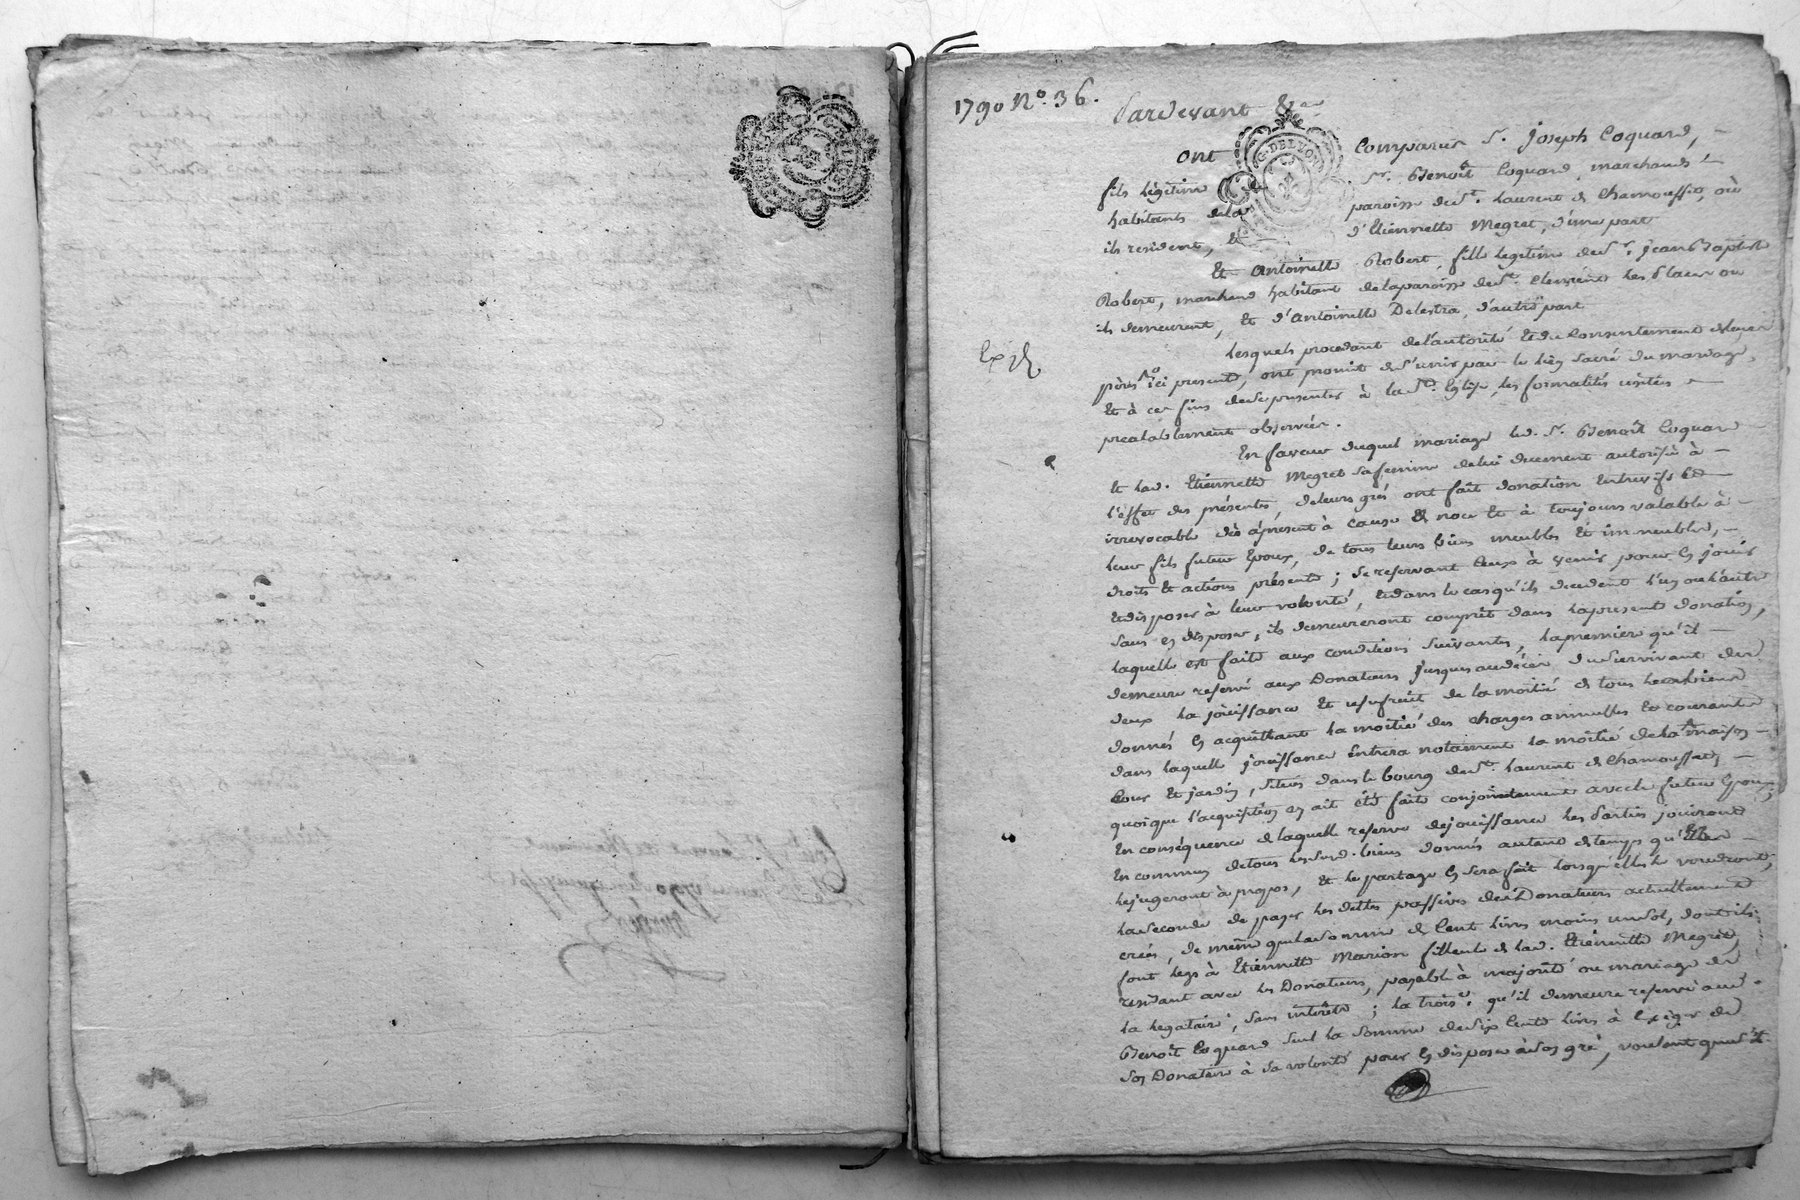 1790 N.° 36.
Pardevant &a
ont Comparus Sr. Joseph Coquard,
fils légitime Sr. Benoît Coquard, marchands
habitants de la paroisse de St. Laurent de Chamousset, où
ils resident, et d'Etiennette Megret, d'une part
G. DE LYON
Et Antoinette Robert, fille legitime de Sr. jean Baptiste
Robert, marchand habitant de la paroisse de St. Clement les places où
ils demeurent, et d'Antoinette Delestra, d'autre part
Lesquels procedant de l'autorité et du consentement de leurs
Exp.
pères ici presents, ont promit de s'unir par le lien sacré du mariage,
et à ces fins de se presenter à la Ste. Eglise, les formalités usitées
prealablement observées.
En faveur duquel mariage led. Sr. Benoît Coquard
et lad. Etiennette Megret sa femme de lui duement autorisée à
l'effet des présentes, de leurs grés ont fait donation entrevifs et
irrevocable dès àpresent à cause de noce et à toujours valable à
leur fils futur Epoux, de tous leurs biens meubles et immeubles,
droits et actions présents; se reservant ceux à venir pour en jouir
et disposer à leur volonté, et dans le cas qu'ils decedent l'un ou l'autre
sans en disposer, ils demeureront compris dans la presente donation,
laquelle est faite aux conditions suivantes, la premiere qu'il
demeure reservé aux Donateurs jusques au décès du survivant des
deux la jouissance et usufruit de la moitié de tous les biens
donnés en acquittant la moitié des charges annuelles et courantes
dans laquelle jouissance entrera notament la moitié de la maison
cour et jardin, situés dans le bourg de St. Laurent de Chamousset,
quoique l'acquisition en ait été faite conjointement avec le futur Epoux;
en conséquence de laquelle reserve de jouissance les parties jouiront
en commun de tous lesd. biens donnés autant de temps qu'elles
le jugeront à propos, et le partage en sera fait lorsqu'elles le voudront;
la seconde de payer les dettes passives des Donateurs actuellement
créés, de même que la somme de Cent livres moins un sol, dont ils
font legs à Etiennette Marion filleule de lad. Etiennette Megret,
residant avec les Donateurs, payable à majorité ou mariage de
la legataire, sans intérêts; la trois.e qu'il demeure reservé aud.
Benoît Coquard seul la somme de six Cents livres à exiger de
son Donataire à sa volonté pour en disposer à son gré, voulant que